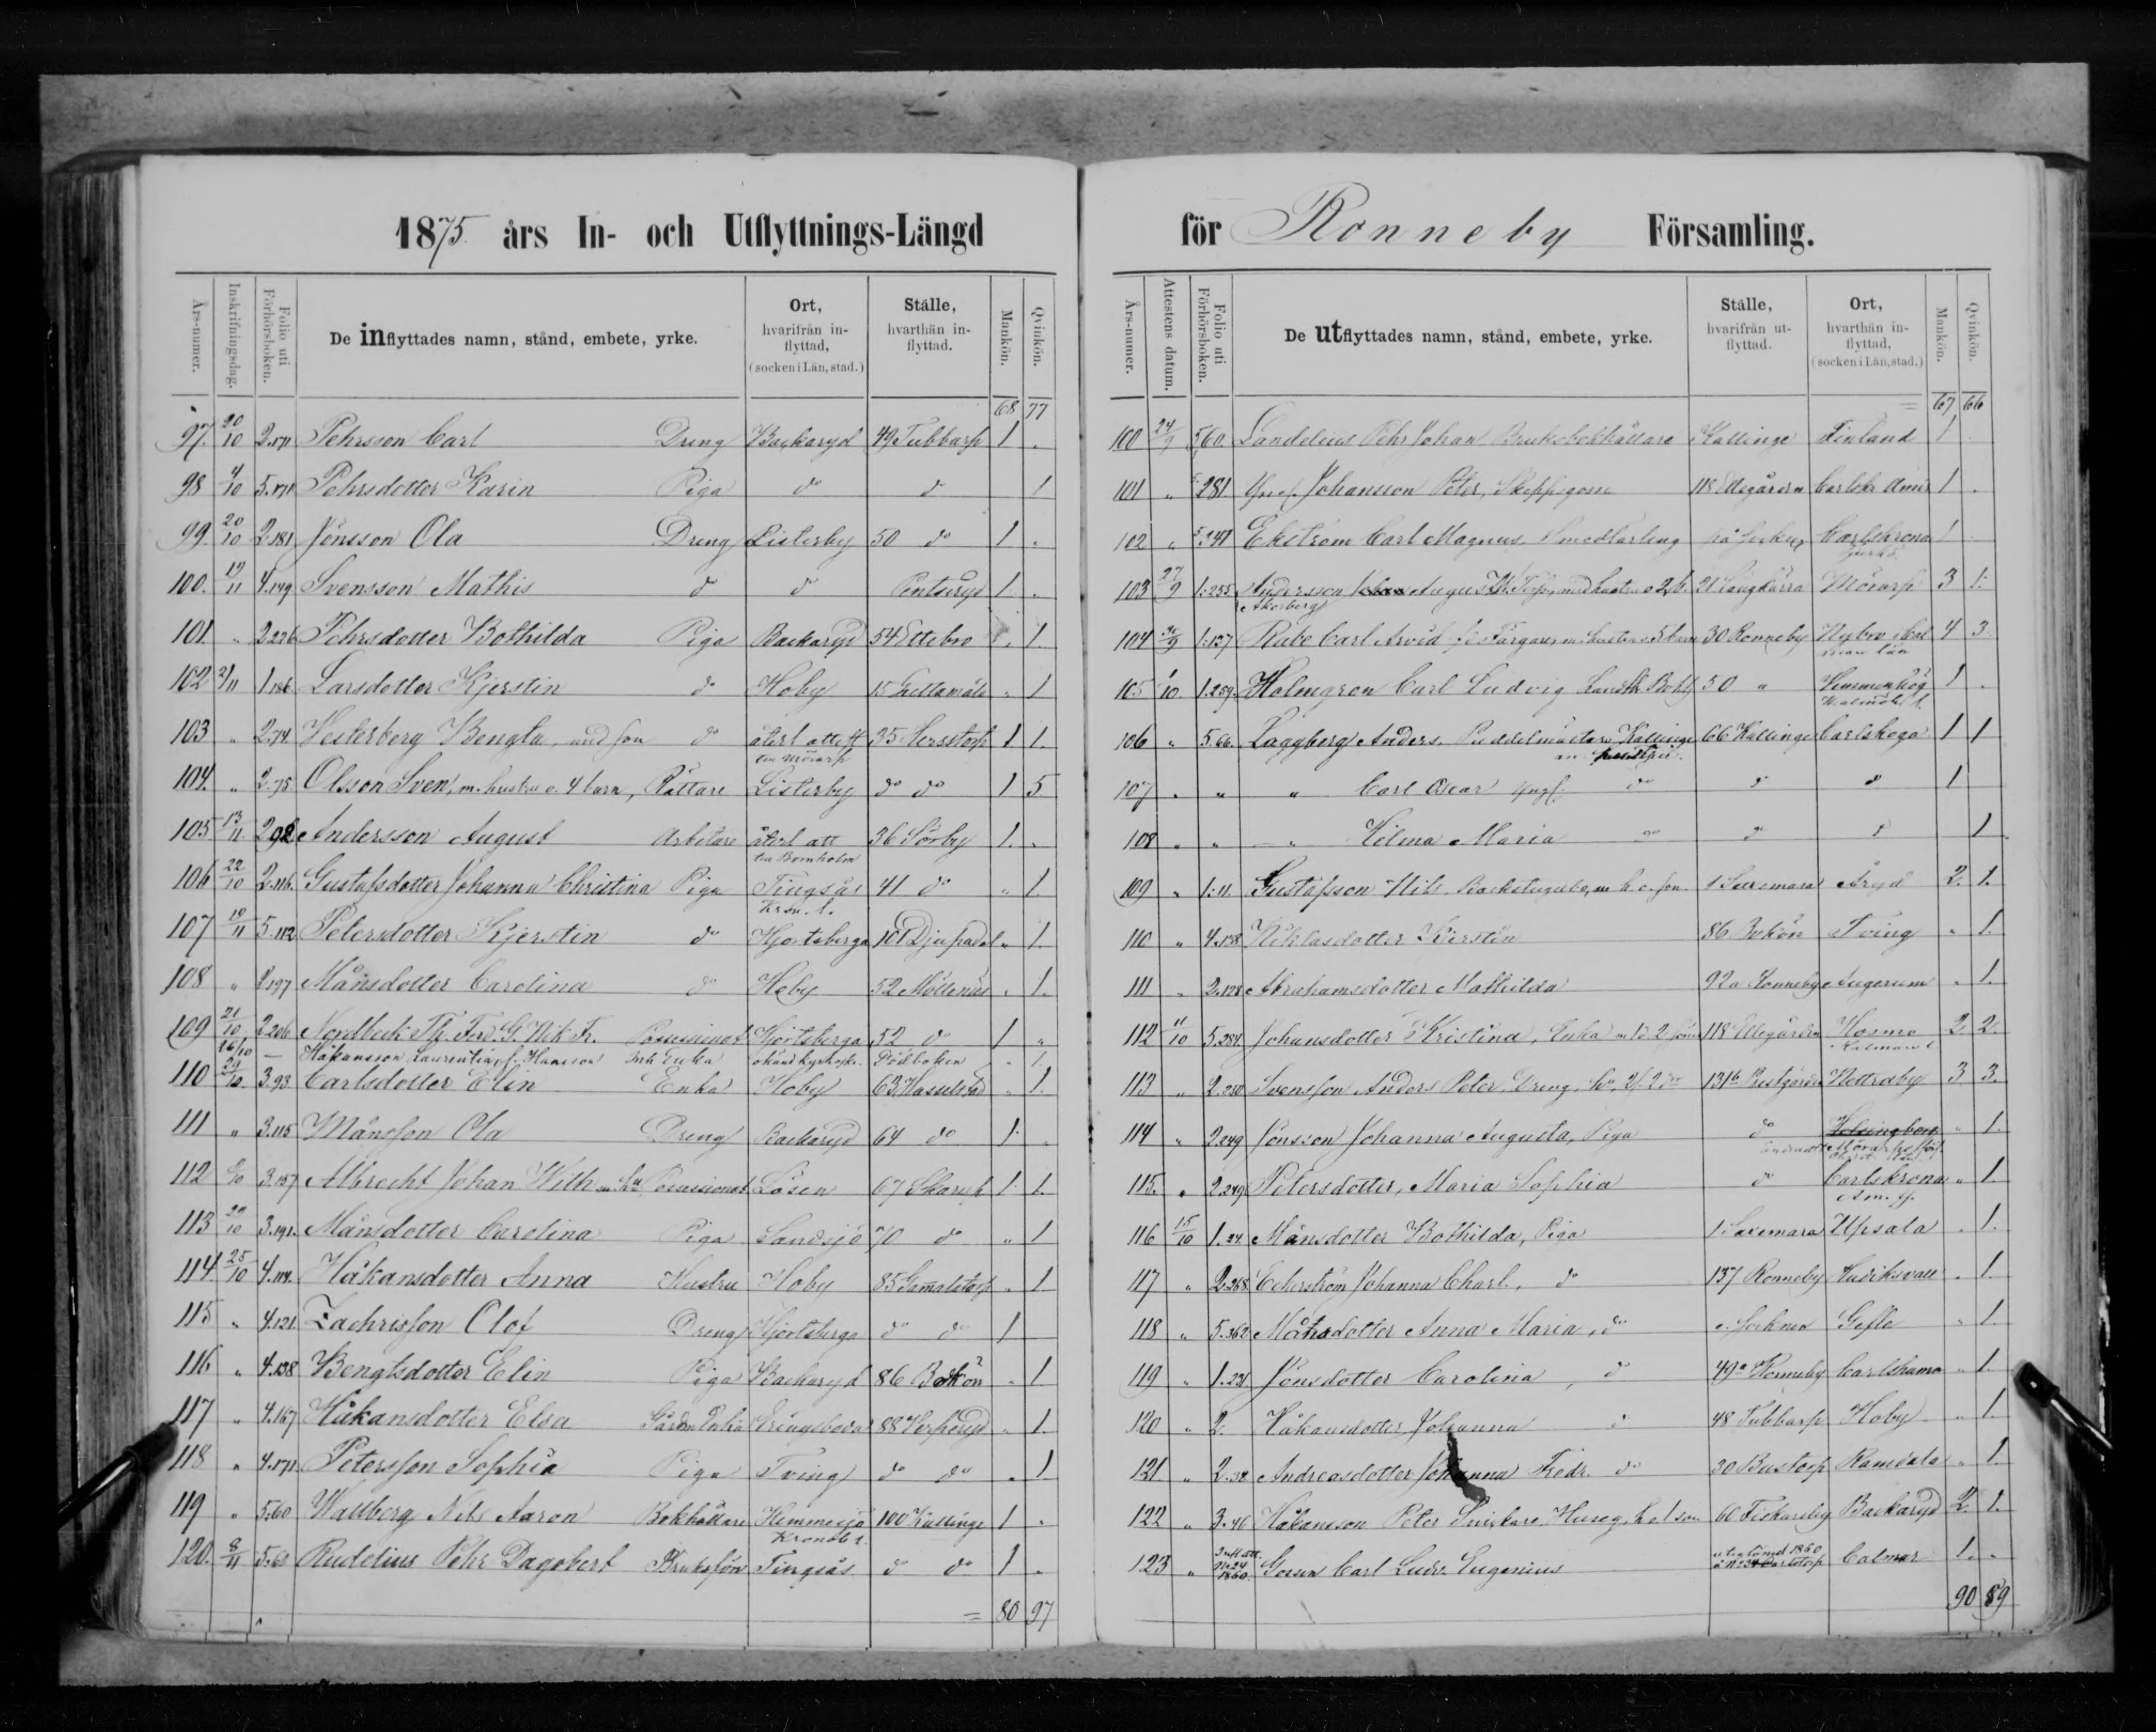 1875 års In- och Utflyttnings-Längd
Års-numer. Inskrifningsdag. Folio uti Förhörsboken. De inflyttades namn, stånd, embete, yrke. Ort, hvarifrån inflyttad, (socken i Län, stad.) Ställe, hvarthän inflyttad. Mankön. Qvinkön.
68 77
97. 20/10 2.171 Pehrsson Carl Dreng Backaryd 49 Tubbarp 1 .
98 4/10 5.171 Pehrsdotter Karin Piga do d 1
99. 20/10 2.181 Jönsson Ola Dreng Listerby 50 do 1 .
100. 19/11 4.149 Svensson Mathis d d 1 .
101 " 2.226 Pehrsdotter Bothilda Piga Backaryd 54 Ettebro . 1.
102 2/11 1.186 Larsdotter Kjerstin d Hoby 15 . 1
103 " 2.74. Vesterberg Bengta, med son d återl attest 35 Hersstorp 1 1.
fra Mörarp
104. " 2.75 Olsson Sven, m. hustru o. 4 barn, Rättare Listerby do do 1 5
105 13/11. 2.92 Andersson August Arbetare återl att 36 Sörby 1. .
fra Bornholm
106 22/10 2.116. Gustafsdotter Johanna Christina Piga Tingsås 41 do " 1
Kron. l.
107 10/11 5.112 Petersdotter Kjerstin do Hjortsberga 101 Djupadal " 1.
108 " 2.197 Månsdotter Carolina do Hoby 52 Möllenäs . 1.
109 21/10 2.206 Nordbeck Th. Ferd. G. Nik. Fr. Possessionat Hjortsberga 52 do 1 "
16/10 — Håkansson Laurentia, f. Hansson Enka Dödboken " 1.
110 29/10. 3.93. Carlsdotter Elin Enka Hoby 63 Hasselstad " 1.
111 " 3.115 Månsson Ola Dreng Backaryd 64 do 1. .
112 3.157 Albrecht Johan Wilh m. hu Possessionat Lösen 67 Skarup 1. 1.
113 20/10 3.191. Månsdotter Carolina Piga Sandsjö 70 do " 1
114. 25/10 4.114. Håkansdotter Anna Hustru Hoby 85 Gammalstorp . 1
115 " 4.121. Zachrisson Olof Dreng Hjortsberga do do 1
116 " 4.138 Bengtsdotter Elin Piga Backaryd 86 Bökön . 1.
117 " 4.167 Håkansdotter Elsa Eringsboda 88 . 1.
118 " 4.171. Petersson Sophia Piga Tving do do . 1.
119 " 5.60 Wallberg Nils Aaron Bokhållare Hemmesjö 100 Kallinge 1 .
Kronob l.
120. 8/11 5.60 Rudelius Pehr Dagobert Tingsås do do 1 .
= 80 97
för Ronneby Församling.
Års-numer. Attestens datum. Folio uti Förhörsboken. De utflyttades namn, stånd, embete, yrke. Ställe, hvarifrån utflyttad. Ort, hvarthän inflyttad, (socken i Län, stad.) Mankön. Qvinkön.
= 67 66
100 24/9 5.60. Landelius Pehr Johan Bruksbokhållare Kallinge Finland 1 .
101 " 281 Yngl. Johansson Peter, Skeppsgosse 118 Ellegården Carlskr Amir 1 .
102 " 5.341 Ekström Carl Magnus Smedlärling Carlskrona 1
103 27/9 1.255 Andersson August, med hustru o 2 b. 21 Långkärra Mörarp 3 1.
Åkerberg
104 30/9 1.137 Rabe Carl Arvid, Färgare, m. hustru o 5 barn 30 Ronneby Nybro Kal 4 3.
mar län
105 1/10 1.259. Holmgren Carl Ludvig 50 " Vemmenhög 1 .
Malmöh. l.
106 " 5.66. Läggberg Anders. Puddelmästare Kallinge 66 Kallinge Carlskoga 1 1
m. hustru
107 " " " Carl Oscar Yngl. do d d 1
108 " " " Hilma Maria do d d 1
109 " 1.11. Gustafsson Nils. Backstugusit., m h. o. son. 1 Saxemara Åryd 2. 1.
110 " 4.138 Niklasdotter Kierstin 86 Bökön Tving " 1.
111 " 2.128 Abrahamsdotter Mathilda 92a Ronneby Augerum . 1.
112 11/10 5.284. Johansdotter Kristina, Enka 118 Ellegården Hosmo 2. 2.
Kalmar l
113 " 2.250 Svensson Anders Peter. Dreng, 131b Prestgården Nettraby 3 3.
114 " 2.249 Jönsson Johanna Augusta, Piga do Helsingborg " 1.
115. " 2.249. Petersdotter, Maria Sophia do Carlskrona " 1.
Am. f.
116 15/10 1.24. Månsdotter Bothilda, Piga 1. Saxemara Upsala . 1.
117 " 2.268. Echerström Johanna Charl. do 137 Ronneby Hudiksvall . 1.
118 " 5.362 Månsdotter Anna Maria, do Gefle " 1.
119 " 1.231. Jönsdotter Carolina, d 49a Ronneby Carlshamn " 1.
120 " 2. Håkansdotter Johanna d 48 Tubbarp Hoby " 1.
121. " 2.38 Andreasdotter Johanna Fredr. do 30 Bustorp Ramdala " 1.
122 " 3.40 Håkansson Peter Snickare Huseg., h. o 1 son 60 Fiskareby Backaryd 2. 1.
123 " Inft att. No 24 1860. Goson Carl Ludv. Eugenius Calmar 1. .
90 89